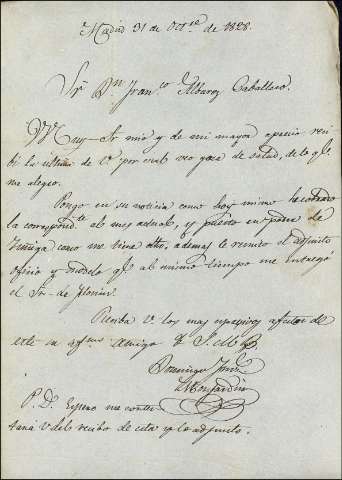 Madrid 31 de Oct.re de 1828.
Sr. Dn. Fran.co Albarez Caballero.
Muy Sr. mio y de mi mayor aprecio reci
bi la ultima de V. por cual veo goza de salud, de lo qe.
me alegro.
Pongo en su noticia como hoy mismo he cobrado
la correspond.te al mes actual, y puesto en poder de
Zuñiga como me tiene dho, ademas le remito el adjunto
oficio y modelo qe. al mismo tiempo me entregó
el Sr. de
Reciba V. los mas afectos de
este su af.mo amigo Q. S. M. B.
Domingo
P. D. Espero me contes
tará V. del recibo de esta y lo adjunto.